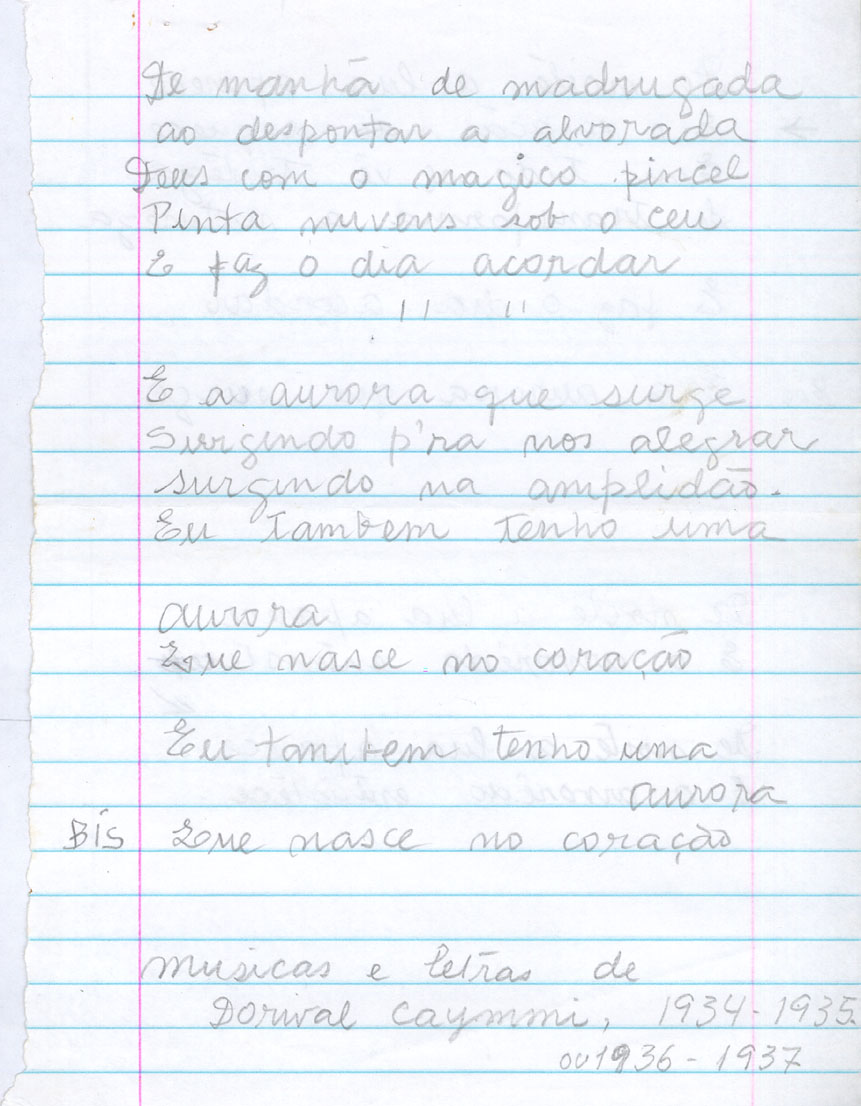 De manhã de madrugada
ao despontar a alvorada
Deus com o magico pincel
Pinta nuvens sob o ceu
E faz o dia acordar
" "
E a aurora que surge
Surgindo p'ra nos alegrar
surgindo na amplidão.
Eu Tambem tenho uma
aurora
Que nasce no coração
Eu tambem tenho uma
aurora
Bis Que nasce no coração
musicas e letras de
Dorival Caymmi, 1934-1935.
ou 1936 - 1937